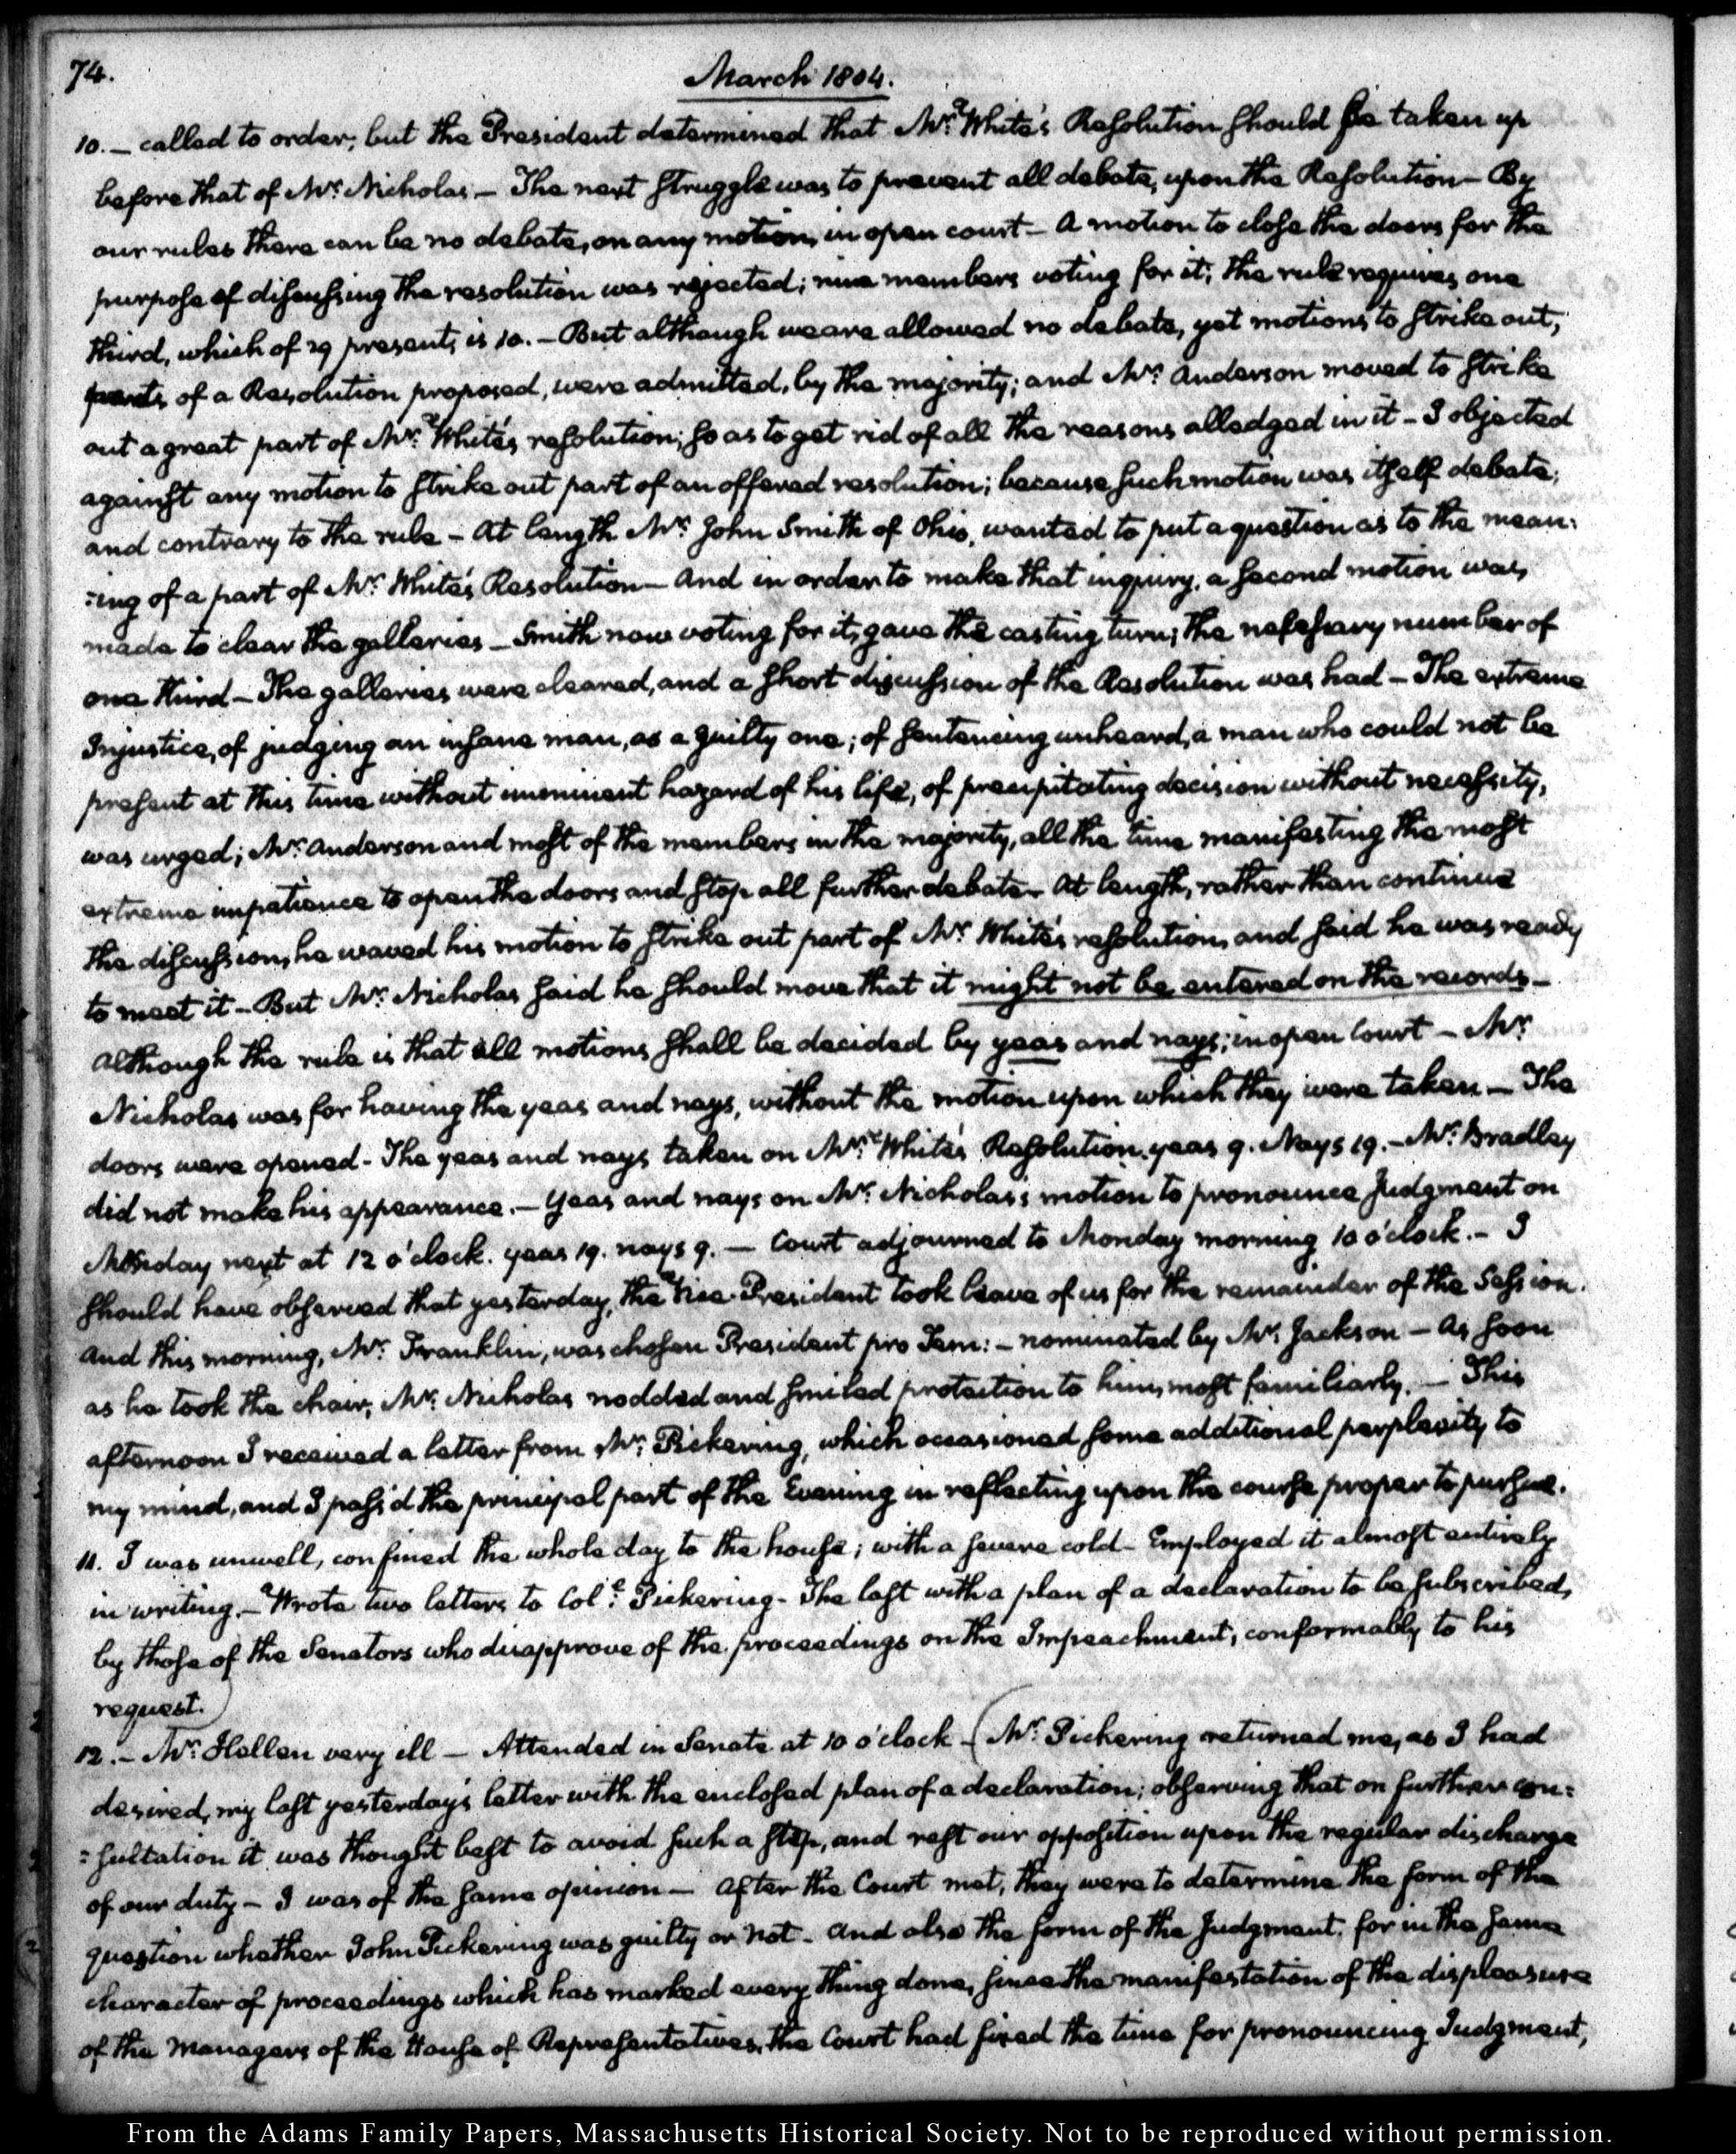 74.
March 1804.
10. — called to order; but the President determined that Mr. White's Resolution should be taken up
before that of Mr. Nicholas — The next struggle was to prevent all debate, upon the Resolution — By
our rules there can be no debate, on any motion, in open court — A motion to close the doors for the
purpose of discussing the resolution was rejected; nine members voting for it; the rule requires one
third, which of 29 present, is 10. — But although we are allowed no debate, yet motions to strike out,
parts of a Resolution proposed, were admitted, by the majority; and Mr. Anderson moved to strike
out a great part of Mr. White's resolution; so as to get rid of all the reasons alledged in it — I objected
against any motion to strike out part of an offered resolution; because such motion was itself debate;
and contrary to the rule — At length Mr. John Smith of Ohio, wanted to put a question as to the mean:
:ing of a part of Mr. White's Resolution — And in order to make that inquiry, a second motion was,
made to clear the galleries — Smith now voting for it, gave the casting turn; the necessary number of
one third — The galleries were cleared, and a short discussion of the Resolution was had — The extreme
Injustice, of judging an insane man, as a guilty one; of sentencing unheard, a man who could not be
present at this time without imminent hazard of his life, of precipitating decision without necessity,
was urged; Mr. Anderson and most of the members in the majority, all the time manifesting the most
extreme impatience to open the doors and stop all further debate — At length, rather than continue
the discussion, he waved his motion to strike out part of Mr. White's resolution, and said he was ready
to meet it — But Mr. Nicholas said he should move that it might not be entered on the records —
Although the rule is that all motions shall be decided by yeas and nays; in open Court — Mr.
Nicholas was for having the yeas and nays, without the motion upon which they were taken — The
doors were opened — The yeas and nays taken on Mr. White's Resolution. yeas 9. Nays 19. — Mr. Bradley
did not make his appearance. — Yeas and nays on Mr. Nicholas's motion to pronounce Judgment on
Monday next at 12 o'clock. yeas 19. nays 9. — Court adjourned to Monday morning 10 o'clock. — I
should have observed that yesterday, the Vice-President took leave of us for the remainder of the Session.
And this morning, Mr. Franklin, was chosen President pro Tem: — nominated by Mr. Jackson — As soon
as he took the chair, Mr. Nicholas nodded and smiled protection to him, most familiarly. — This
afternoon I received a letter from Mr. Pickering, which occasioned some additional perplexity to
my mind, and I pass'd the principal part of the Evening in reflecting upon the course proper to pursue.
11. I was unwell, confined the whole day to the house; with a severe cold — Employed it almost entirely
in writing. — Wrote two letters to Coll. Pickering — The last with a plan of a declaration to be subscribed,
by those of the Senators who disapprove of the proceedings on the Impeachment, conformably to his
request.)
12. — Mr. Hellen very ill — Attended in Senate at 10 o'clock — (Mr. Pickering returned me, as I had
desired, my last yesterday's letter with the enclosed plan of a declaration; observing that on further con:
:sultation it was thought best to avoid such a step, and rest our opposition upon the regular discharge
of our duty — I was of the same opinion — After the Court met, they were to determine the form of the
question whether John Pickering was guilty or not — And also the form of the Judgment. for in the same
character of proceedings which has marked every thing done, since the manifestation of the displeasure
of the Managers of the House of Representatives, the Court had fixed the time for pronouncing Judgment,
From the Adams Family Papers, Massachusetts Historical Society. Not to be reproduced without permission.